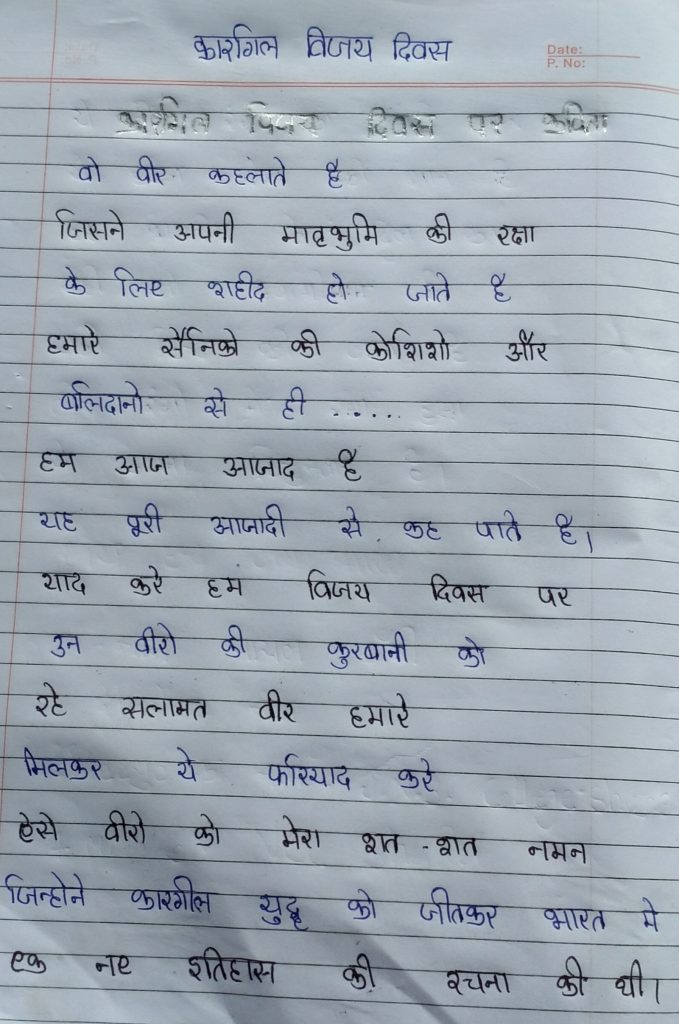 कारगिल विजय दिवस
Date:
P. No:
कारगिल विजय दिवस पर कविता
वो वीर कहलाते है
जिसने अपनी मातृभुमि की रक्षा
के लिए शहीद हो जाते है
हमारे सैनिको की कोशिशो और
बलिदानो से ही ......
हम आज आजाद है
यह पूरी आजादी से कह पाते है।
याद करे हम विजय दिवस पर
उन वीरो की कुरबानी को
रहे सलामत वीर हमारे
मिलकर ये फरियाद करे
ऐसे वीरो को मेरा शत-शत नमन
जिन्होने कारगील युद्ध को जीतकर भारत मे
एक नए इतिहास की रचना की थी।